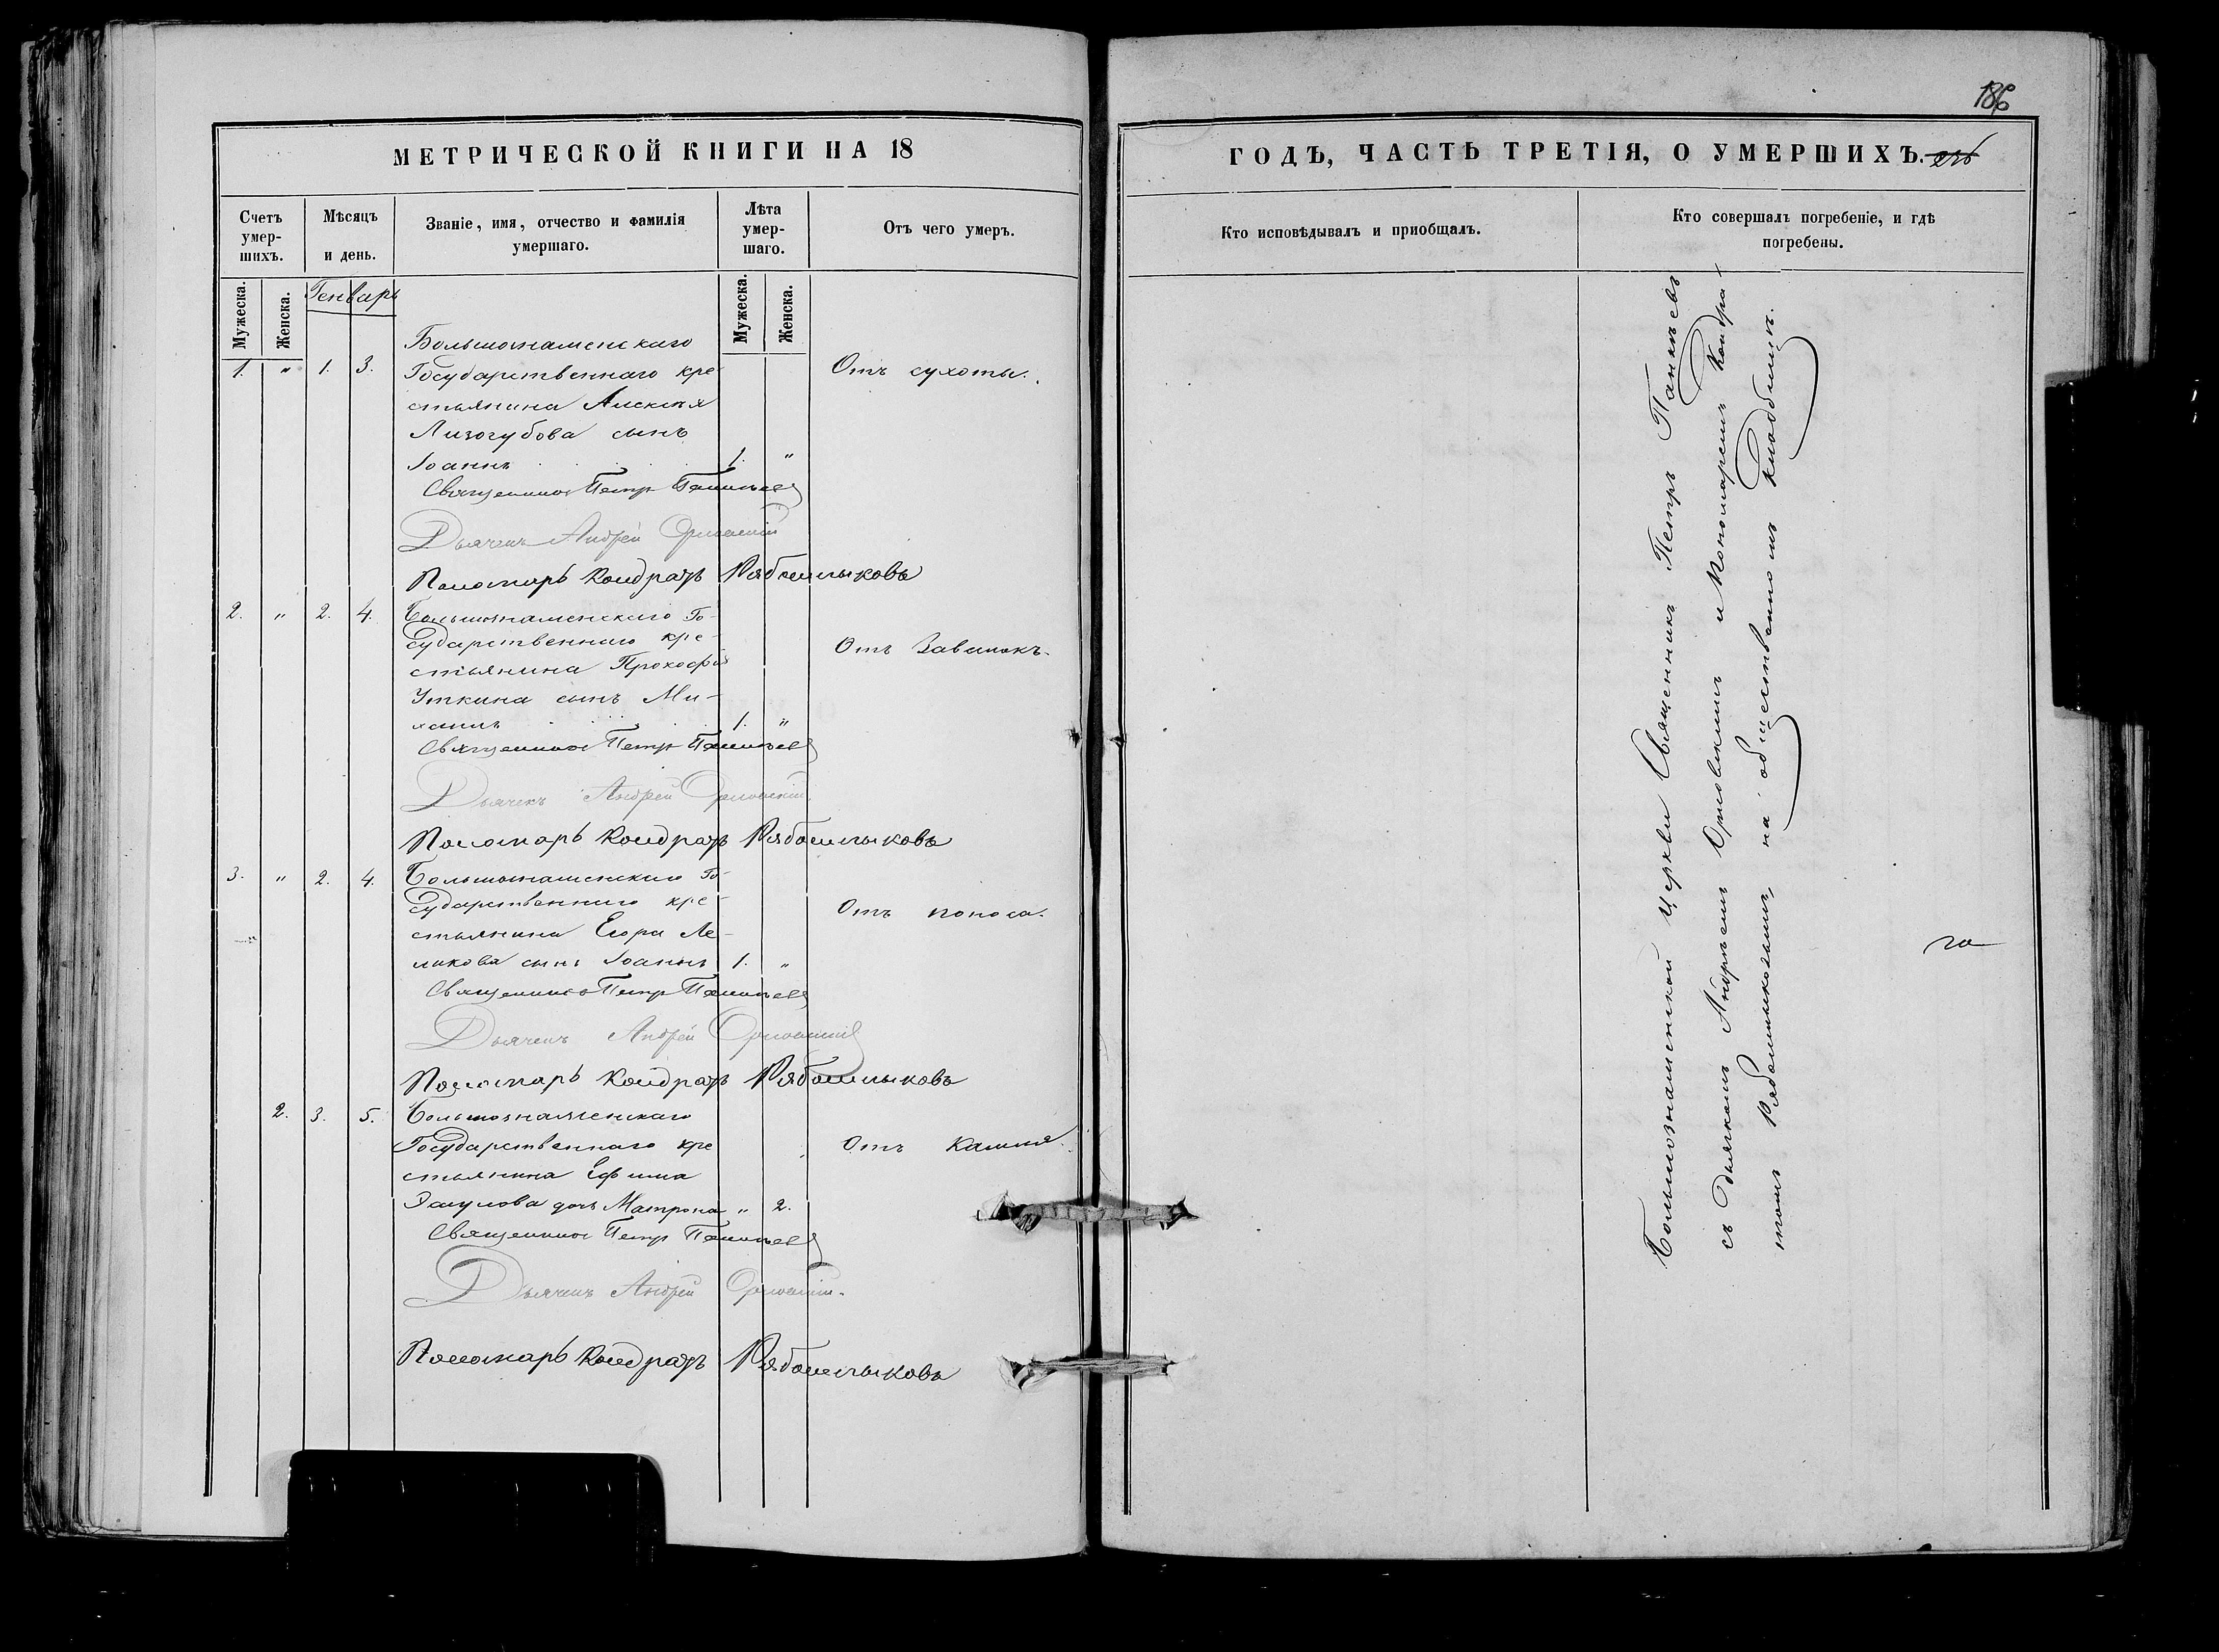 186
МЕТРИЧЕСКОЙ КНИГИ НА 18
ГОДЪ, ЧАСТЬ ТРЕТІЯ, О УМЕРШИХЪ.
Счетъ умер-шихъ.
Мѣсяцъ и день.
Званіе, имя, отчество и фамилія умершаго.
Лѣта умер-шаго.
Отъ чего умеръ.
Мужеска.
Женска.
Генварь
Мужеска.
Женска.
Большознаменскаго
1. " 1. 3. Государственнаго кре- Отъ сухоты.
стьянина Алексѣя
Лизогубова сынъ
Іоаннъ 1. "
Священникъ Петръ Панкѣевъ
Дьячекъ Андрей Орловскій
Пономарь Кондратъ Рябошлыковъ
2. " 2. 4. Большознаменскаго Го-
сударственнаго кре- Отъ Завалокъ.
стьянина Прокофія
Уткина сынъ Ми-
хаилъ 1. "
Священникъ Петръ Панкѣевъ
Дьячекъ Андрей Орловскій
Пономарь Кондратъ Рябошлыковъ
3. " 2. 4. Большознаменскаго Го-
сударственнаго кре- Отъ поноса.
стьянина Егора Ле-
ликова сынъ Іоаннъ 1. "
Священникъ Петръ Панкѣевъ
Дьячекъ Андрей Орловскій
Пономарь Кондратъ Рябошлыковъ
2. 3. 5. Большознаменскаго
Государственнаго кре- Отъ Кашля.
стьянина Ефима
дочь Матрона " 2.
Священникъ Петръ Панкѣевъ
Дьячекъ Андрей Орловскій.
Пономарь Кондратъ Рябошлыковъ
Кто исповѣдывалъ и пріобщалъ.
Кто совершалъ погребеніе, и гдѣ погребены.
Большознаменской Церкви Священникъ Петръ Панкѣевъ
съ Дьячкомъ Андреемъ Орловскимъ и Пономаремъ Кондра-
томъ Рябошлыковымъ, на общественномъ кладбищѣ.